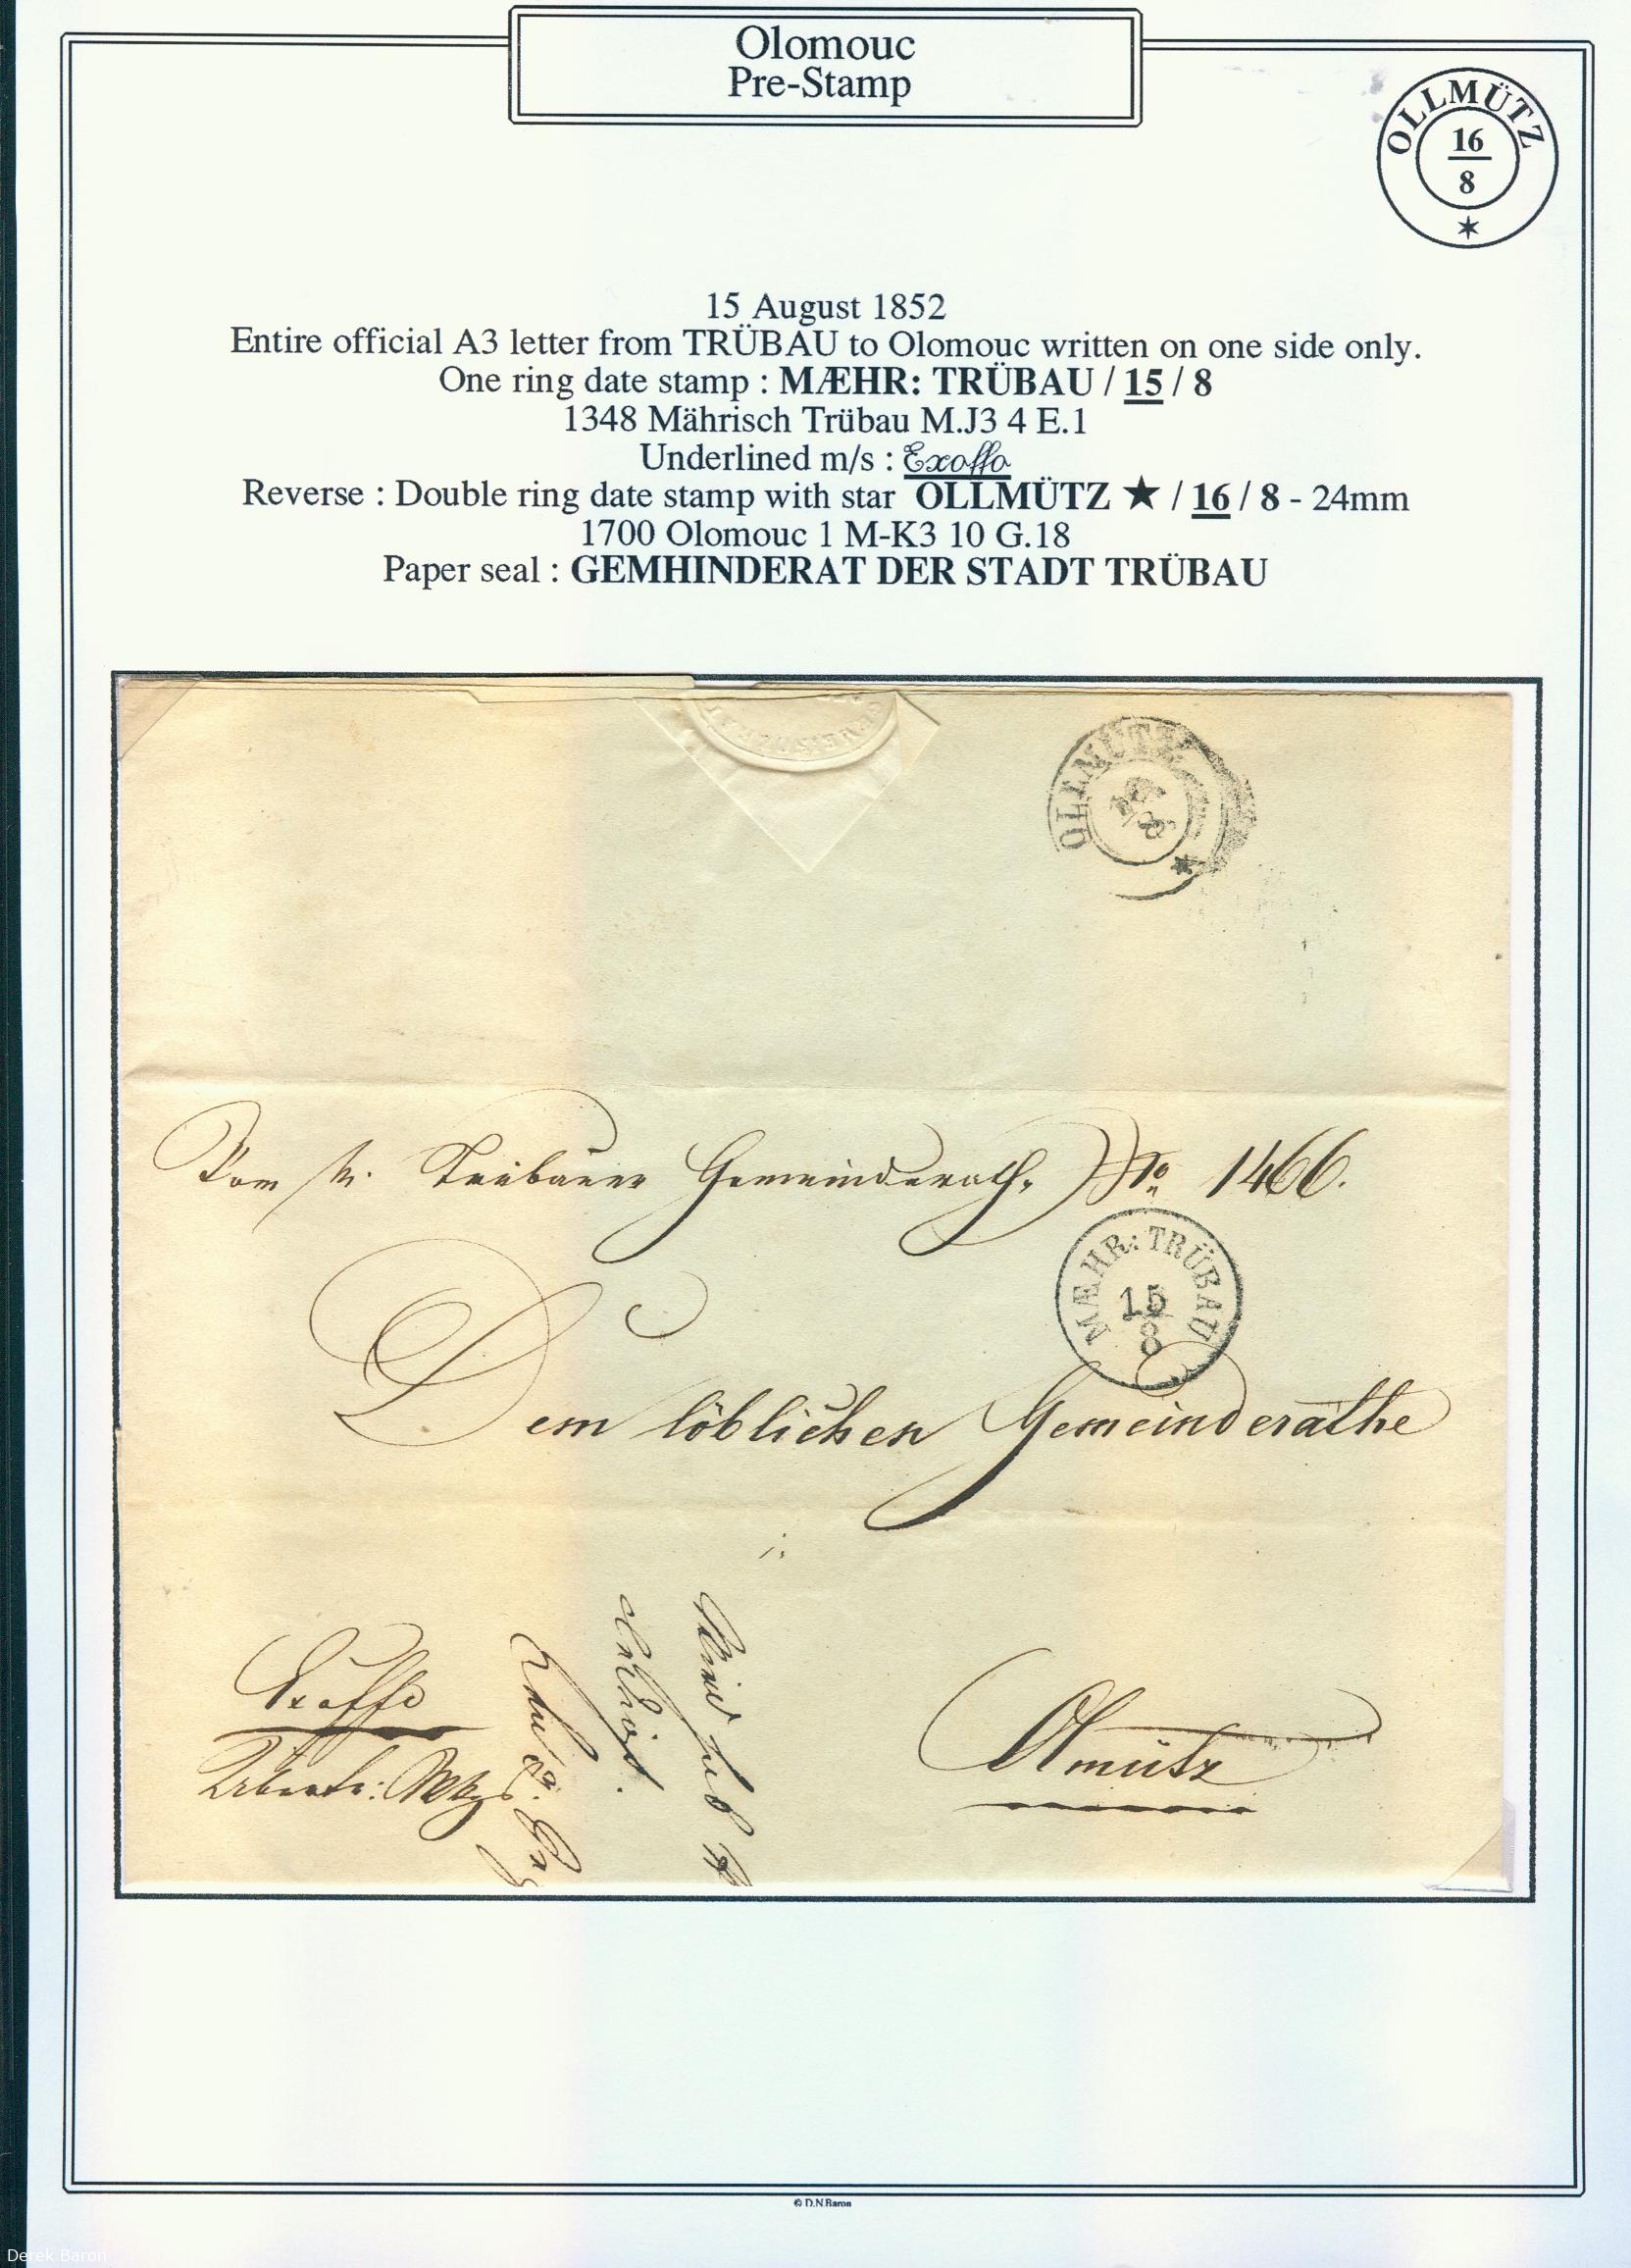 Olomouc
Pre-Stamp
OLLMÜTZ
16
8
15 August 1852
Entire official A3 letter from TRÜBAU to Olomouc written on one side only.
One ring date stamp : MÆHR: TRÜBAU / 15 / 8
1348 Mährisch Trübau M.J3 4 E.1
Underlined m/s : Exoffo
Reverse : Double ring date stamp with star OLLMÜTZ ★ / 16 / 8 - 24mm
1700 Olomouc 1 M-K3 10 G.18
Paper seal : GEMHINDERAT DER STADT TRÜBAU
OLLMÜTZ
Vom m. Trübauer Gemeinderath. No 1466.
MÆHR: TRÜBAU
15
8
Dem löblichen Gemeinderathe
Exoffo
Olmütz
© D.N.Baron
Derek Baron